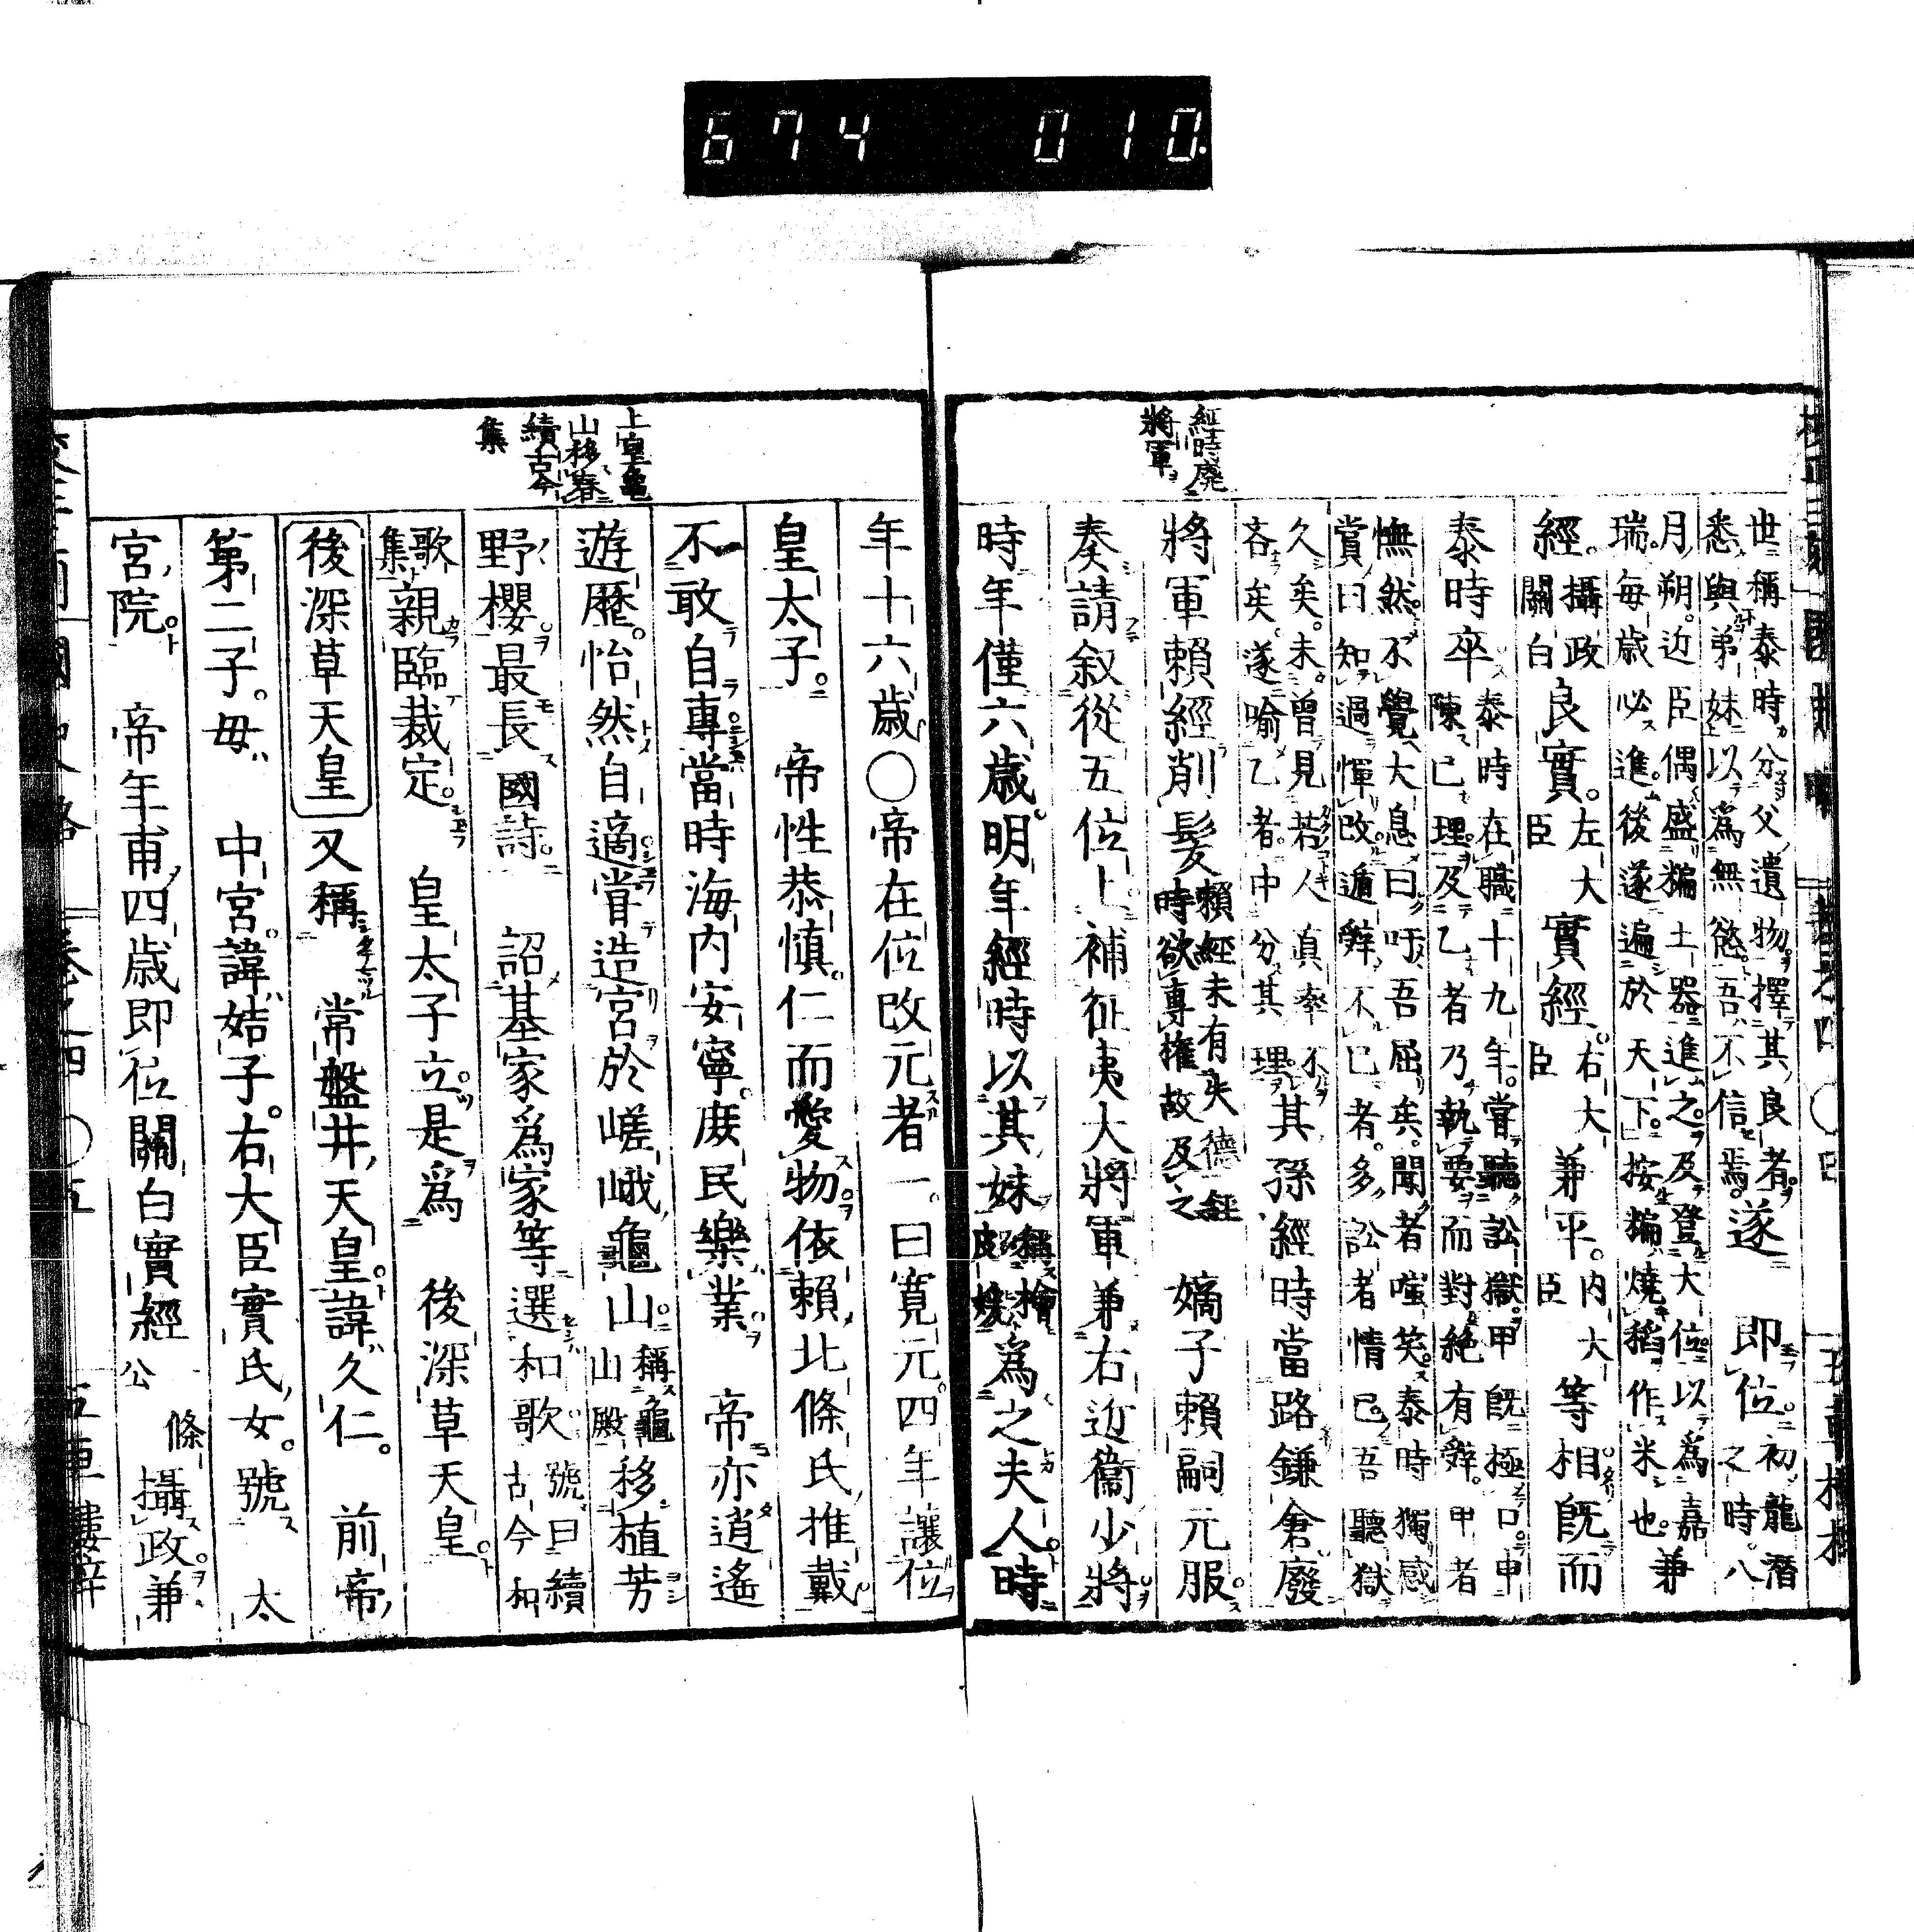 674 010.
經時廢
將軍
世稱泰時分父遺物擇其良者遂
悉與弟妹以爲無慾吾不信焉
即位初龍潛
之時八
月朔近臣偶盛糄土器進之及登大位以爲嘉
瑞毎歳必進後遂遍於天下按糄燒稻作米也
兼
經攝政
關白良實左大
臣實經右大
臣兼平内大
臣等相既而
泰時卒泰時在職十九年嘗聽訟獄甲既極口申
陳已理及乙者乃執要而對絶有辭甲者
憮然不覺大息曰吁吾屈矣聞者嗤笑泰時獨感
賞曰知過憚改遁辭不已者多訟者情已吾聽獄
久矣未曾見若人眞率不
吝矣遂喻乙者中分其理其孫經時當路鎌倉廢
將軍賴經削髮賴經未有失德經
時欲專權故及之嫡子賴嗣元服
奏請叙從五位上補征夷大將軍兼右近衞少將
時年僅六歳明年經時以其妹稱檜
皮姫爲之夫人時
上皇龜
山移春
續古今
集
年十六歳○帝在位改元者一曰寛元四年讓位
皇太子 帝性恭愼仁而愛物依賴北條氏推戴
不敢自專當時海内安寧庶民樂業 帝亦逍遙
遊歴怡然自適嘗造宮於嵯峨龜山稱龜
山殿移植芳
野櫻最長國詩 詔基家爲家等選和歌號曰續
古今和
歌
集親臨裁定 皇太子立是爲 後深草天皇
後深草天皇又稱 常盤井天皇諱久仁 前帝
第二子毋 中宮諱姞子右大臣實氏女號 太
宮院 帝年甫四歳即位關白實經公 條攝政兼